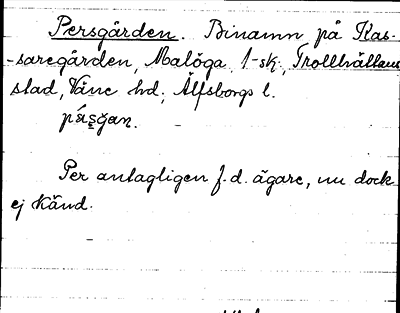 Persgården. Binamn på Kas-
-saregården, Malöga, 1-sk., Trollhättans
stad, Väne hd, Älfsborgs l.
pás̱gan.
Per antagligen f.d. ägare, nu dock
ej känd.